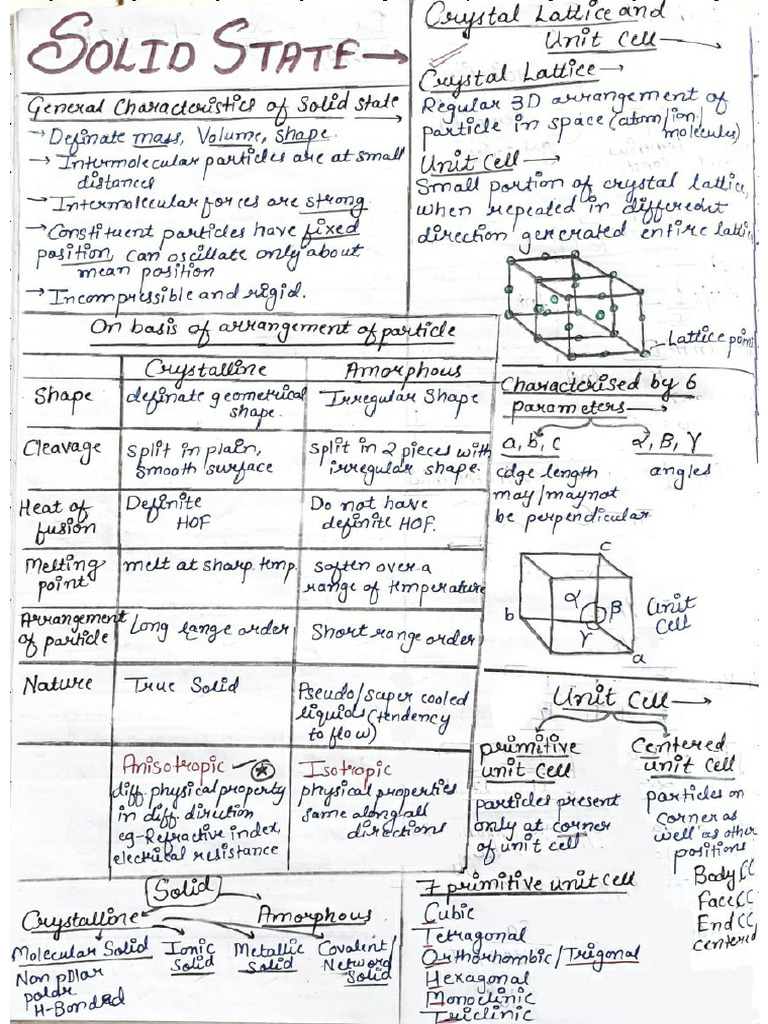 SOLID STATE →
General Characteristics of Solid state
→ Definate mass, Volume, shape.
→ Intermolecular particles are at small
distances
→ Intermolecular forces are strong.
→ Constituent particles have fixed
position, can oscillate only about
mean position
→ Incompressible and rigid.
Crystal Lattice and
Unit Cell →
Crystal Lattice →
Regular 3D arrangement of
particle in space (atom/ion/
molecules)
Unit Cell →
Small portion of crystal lattice,
when repeated in different
direction generated entire
Lattice
On basis of arrangement of particle
Crystalline Amorphous
Shape definate geometrical Irregular Shape
shape.
Cleavage split in plain, split in 2 pieces with
smooth surface irregular shape.
Heat of Definite Do not have
fusion HOF definite HOF.
Melting melt at sharp tmp. soften over a
point range of tmperature
Arrangement Long range order Short range order
of particle
Nature True Solid Pseudo/super cooled
liquids (tendency
to flow)
Anisotropic Isotropic
diff. physical property physical properties
in diff. diruction same along all
eg-Refractive index, directions
electrical resistance
Characterised by 6
parameters →
a, b, c α, β, γ
edge length angles
may/maynot
be perpendicular
c
b
α
β
γ
a
Unit
Cell
Unit Cell →
primitive Centered
unit cell unit cell
particles present particles on
only at corner corner as
of unit cell well as other
positions
Body CC
Face CC
End CC
centered
Solid
Crystalline Amorphous
Molecular Solid Ionic Metallic Covalent/
Solid Solid Network
Solid
Non polar
polar
H-Bonded
7 primitive unit cell
Cubic
Tetragonal
Orthorhombic/Trigonal
Hexagonal
Monoclinic
Triclinic